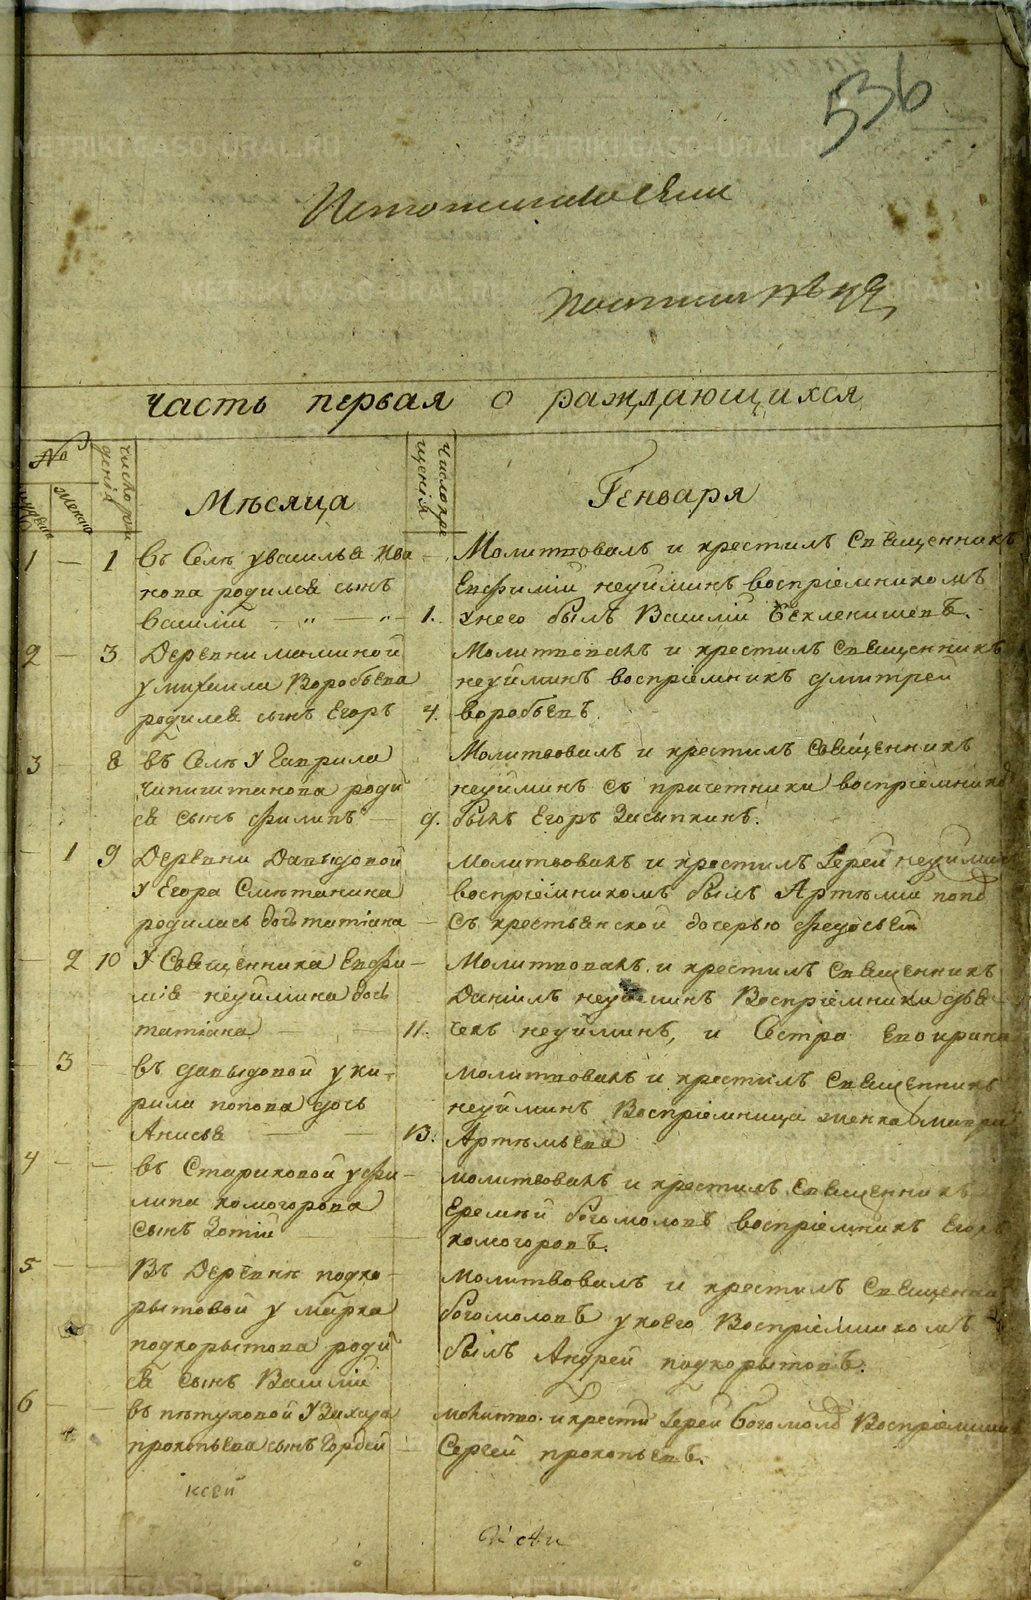 METRIKI.GASO-URAL.RU
536
часть первая о раждающихся
№
число рож
денія
Мѣсяца
число кре
щенія
Генваря
1 — 1 Въ Селѣ у василья Ива
нова родился сынъ
Василій — „ — „ — 1.
Молитвовалъ и крестилъ Священникъ
Евфимій неуйминъ воспріемникомъ
у него былъ Василій Бекленищевъ.
2 — 3 Деревни маминой
у михаила Воробьева
родился сынъ Егоръ 4.
Молитвовалъ и крестилъ Священникъ
неуйминъ воспріемникъ дмитрей
воробьевъ.
3 8 въ Селѣ у Гаврила
Чипиштанова роди
ся сынъ Филипъ — 9.
Молитвовалъ и крестилъ Священникъ
неуйминъ съ причетники воспріемнико
былъ Егоръ Засыпкинъ.
— 1 9 Деревни Давыдовой
у Егора Сметанина
родилась дочь татіана —
молитвовалъ и крестилъ Іерей неуйминъ
воспріемникомъ былъ Артемій попо
съ крестьянской дочерью Федосьей
— 2 10 у Священника Евфи
мія неуймина дочь
татіана — — 11.
Молитвовалъ и крестилъ Священникъ
Даніилъ неуйминъ Воспріемники дья
чекъ неуйминъ, и Сестра
3 — въ давыдовой у ки-
рила попова дочь
Анисья — — 13.
молитвовалъ и крестилъ Священникъ
неуйминъ Воспріемница женка мавра
Артемьева
4 — — въ Стариковой у Фи-
липа комогорова
сынъ Зотій
молитвовалъ и крестилъ Священникъ
Еремѣй богомоловъ воспріемникъ Егоръ
комогоровъ.
5 — — Въ Деревнѣ подко-
рытовой у марка
подкорытова роди
ся сынъ Василій
Молитвовалъ и крестилъ Священни
богомоловъ у коего Воспріемникомъ
былъ Андрей подкорытовъ.
6 — — въ пѣтуховой у Захара
прокопьева сынъ Гордей
молитво. и крести Іерей богомоло Воспріемник
Сергей прокопьевъ.
ксей
METRIKI.GASO-URAL.RU